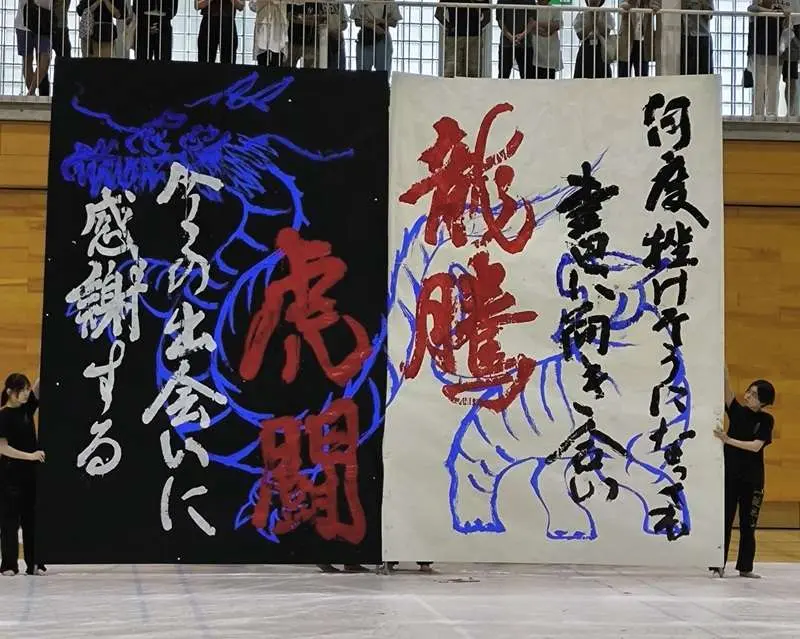 何度挫けそうになっても
書道に向き合い
龍騰
虎闘
今この出会いに
感謝する